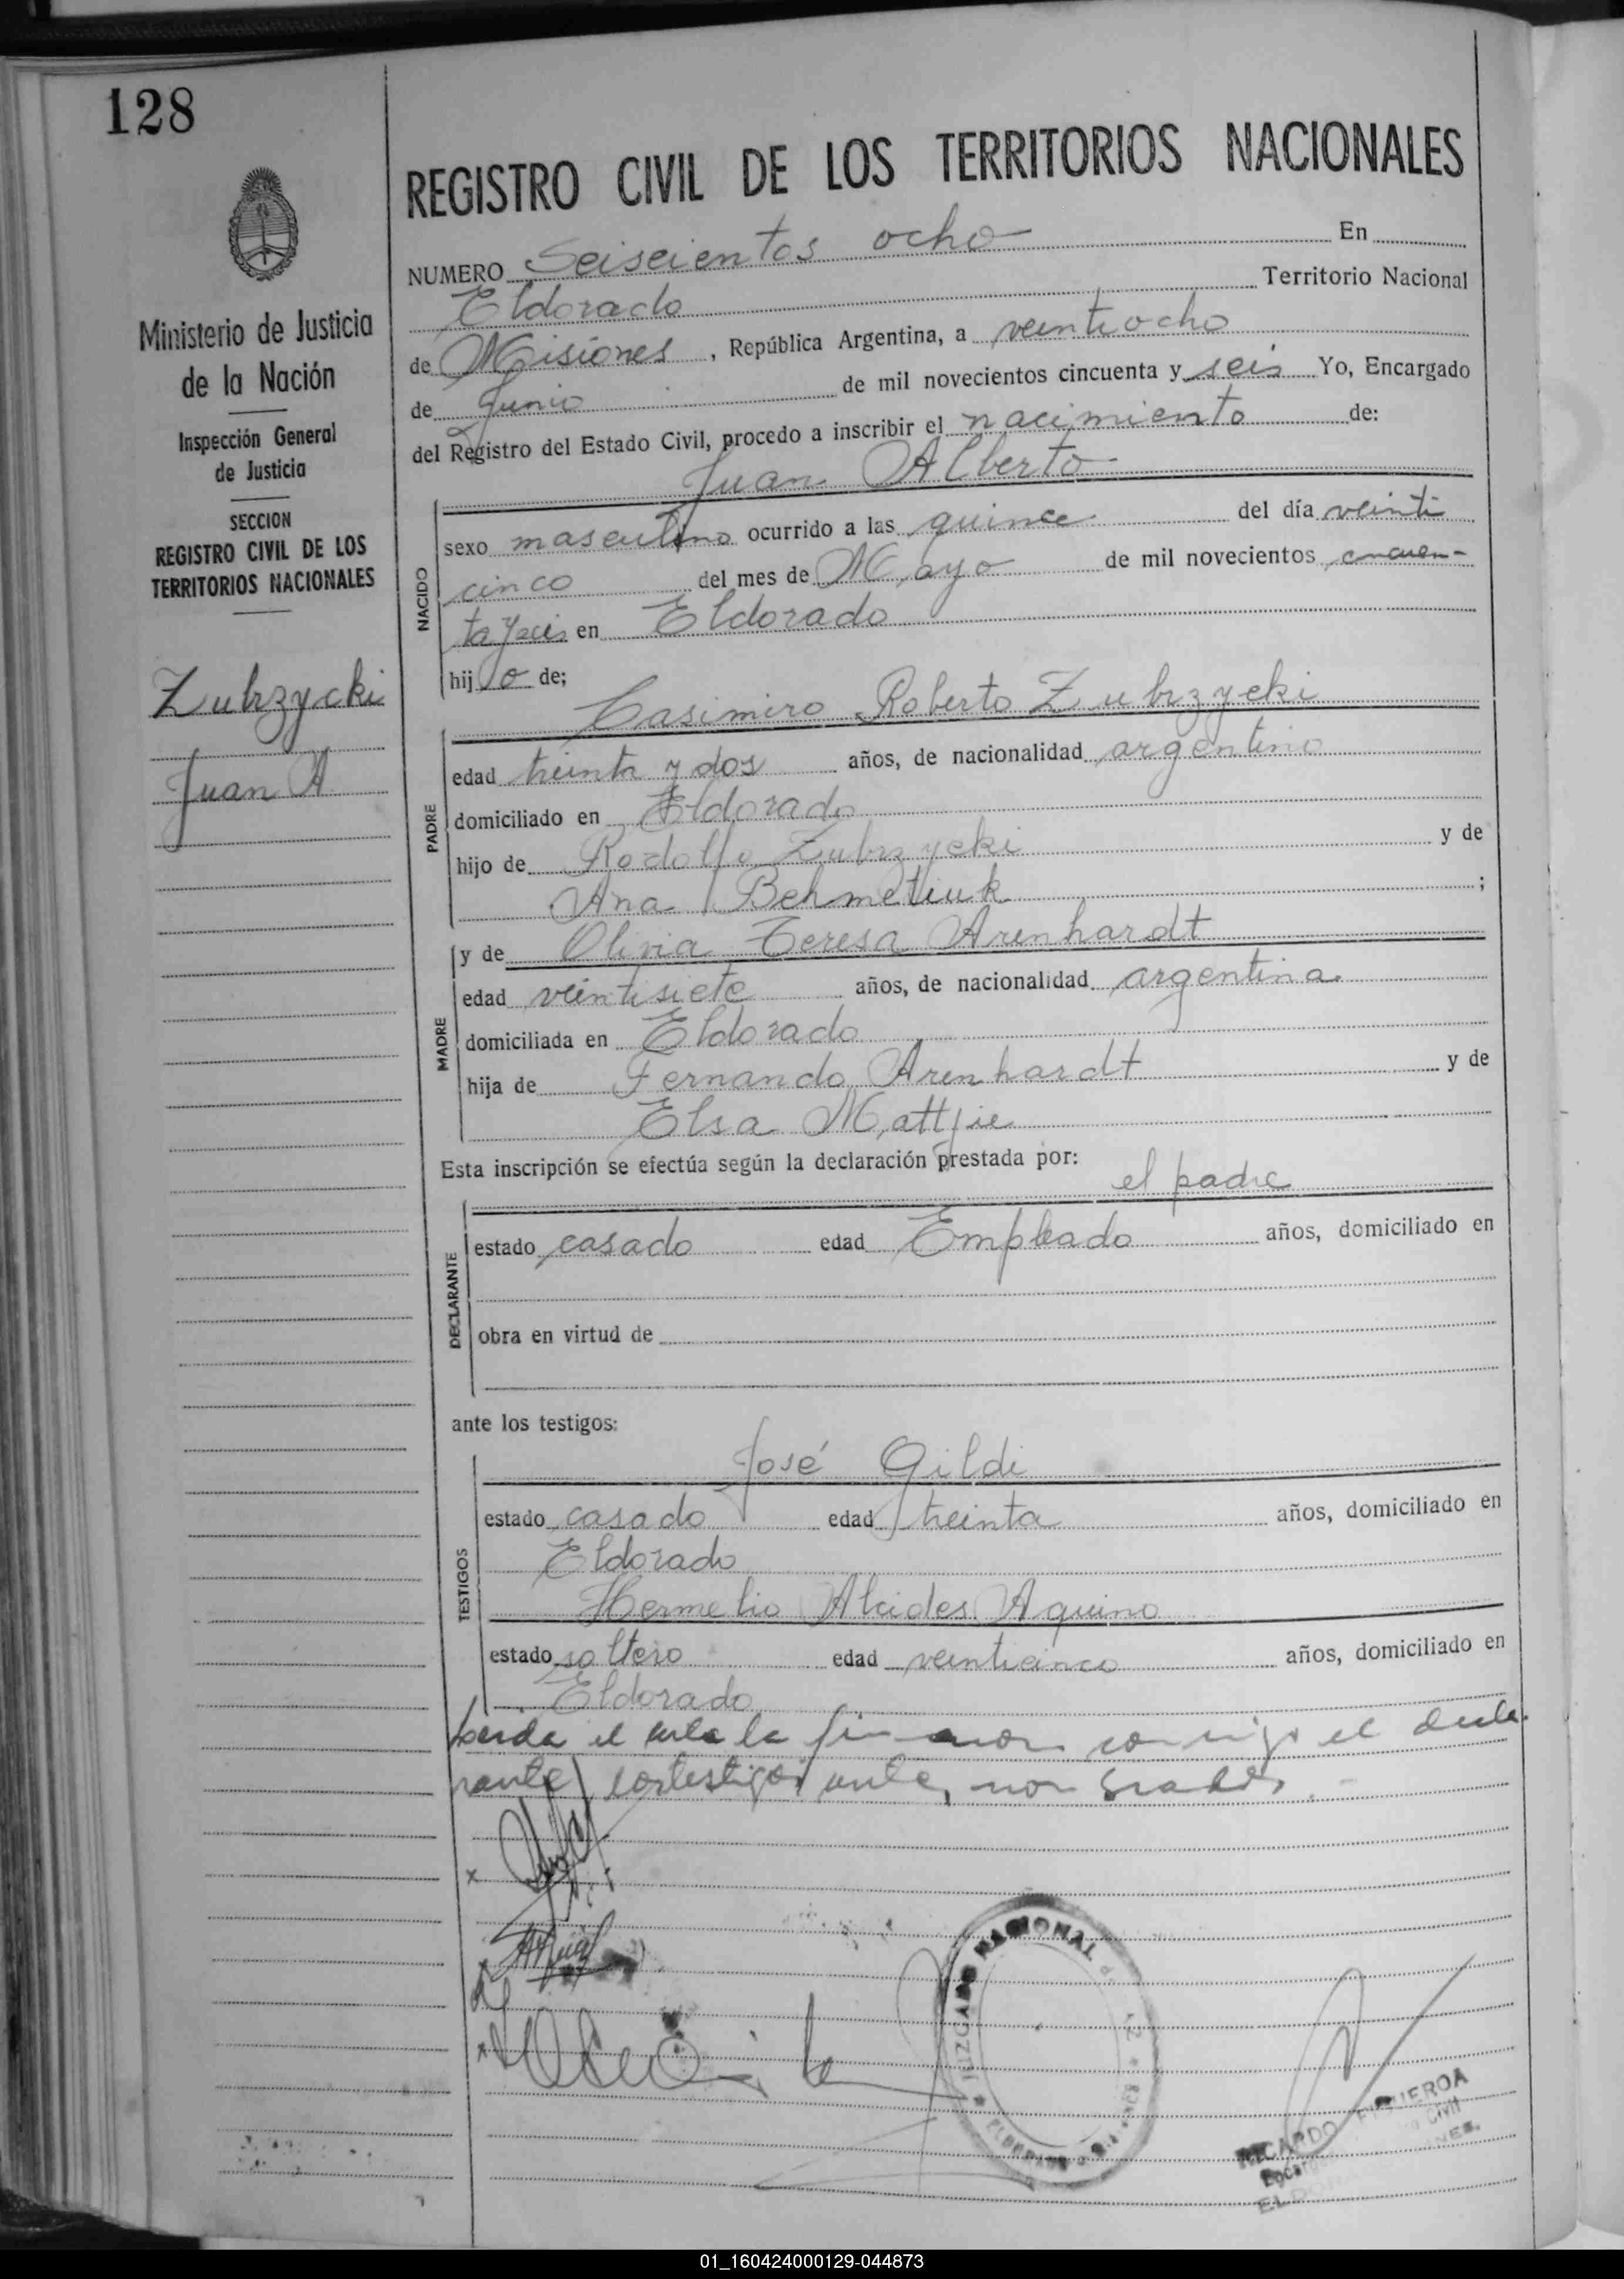 128
Ministerio de Justicia
de la Nación
Inspección General
de Justicia
SECCION
REGISTRO CIVIL DE LOS
TERRITORIOS NACIONALES
Zubrzycki
Juan A
REGISTRO CIVIL DE LOS TERRITORIOS NACIONALES
NUMERO Seiscientos ocho En
Eldorado Territorio Nacional
de Misiones, República Argentina, a veintiocho
de Junio de mil novecientos cincuenta y seis Yo, Encargado
del Registro del Estado Civil, procedo a inscribir el nacimiento de:
Juan Alberto
NACIDO
sexo masculino ocurrido a las quince del día veinti
cinco del mes de Mayo de mil novecientos cincuen-
ta y seis en Eldorado
hijo de;
Casimiro Roberto Zubrzycki
PADRE
edad treinta y dos años, de nacionalidad argentino
domiciliado en Eldorado
hijo de Rodolfo Zubrzycki y de
Ana Behmetiuk ;
MADRE
y de Olivia Teresa Arenhardt
edad veintisiete años, de nacionalidad argentina
domiciliada en Eldorado
hija de Fernando Arenhardt y de
Elsa Mattjie
Esta inscripción se efectúa según la declaración prestada por:
el padre
DECLARANTE
estado casado edad Empleado años, domiciliado en
obra en virtud de
ante los testigos:
José Gildi
TESTIGOS
estado casado edad treinta años, domiciliado en
Eldorado
Hermelio Alcides Aquino
estado soltero edad veinticinco años, domiciliado en
Eldorado
el la conmigo el decla
rante
JUZGADO NACIONAL DE PAZ
ELDORADO
RICARDO FIGUEROA
ELDORADO
01_160424000129-044873